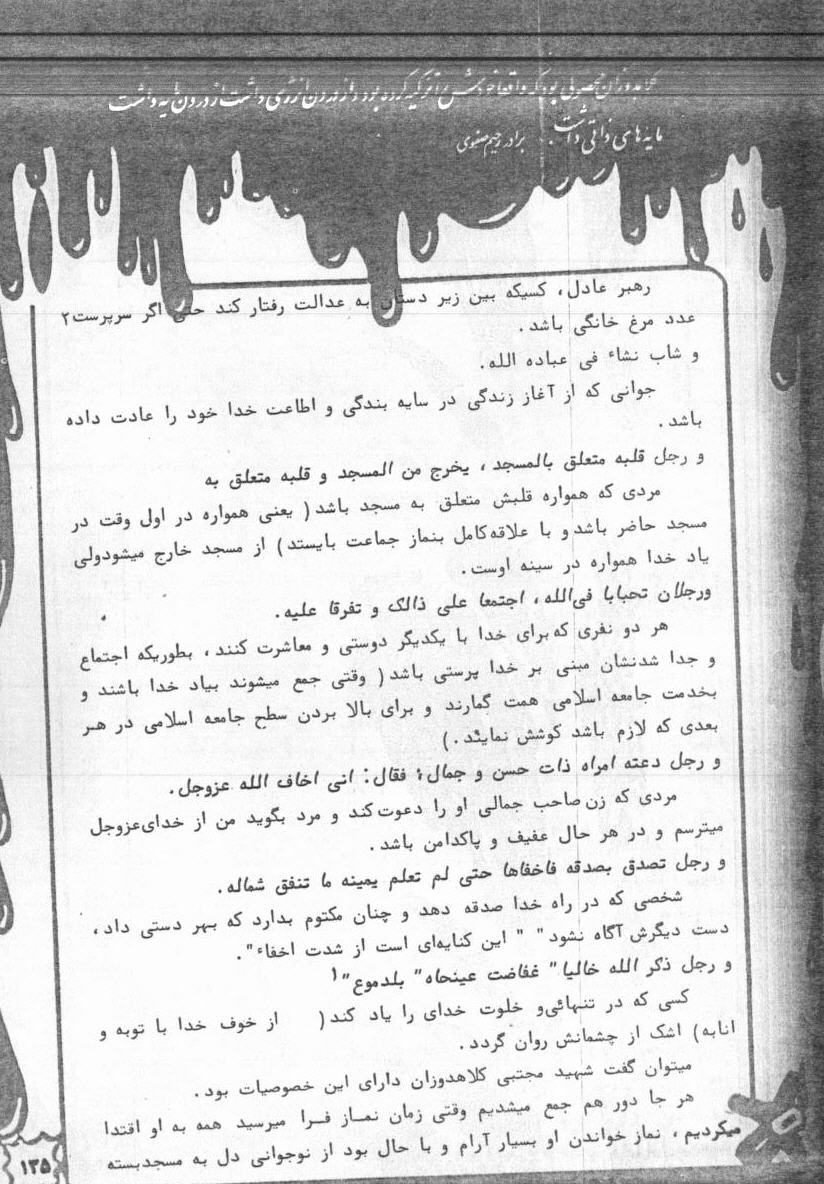 کلاهدوزان محصولی بود که واقعا خودش را تزکیه کرده بود و از درون انرژی داشت از درون مایه داشت
مایه های ذاتی داشت. برادر رحیم صفوی
رهبر عادل، کسیکه بین زیر دستان به عدالت رفتار کند حتی اگر سرپرست ۲
عدد مرغ خانگی باشد.
و شاب نشاء فی عباده الله.
جوانی که از آغاز زندگی در سایه بندگی و اطاعت خدا خود را عادت داده
باشد.
و رجل قلبه متعلق بالمسجد، یخرج من المسجد و قلبه متعلق به
مردی که همواره قلبش متعلق به مسجد باشد( یعنی همواره در اول وقت در
مسجد حاضر باشد و با علاقه کامل بنماز جماعت بایستد) از مسجد خارج میشودولی
یاد خدا همواره در سینه اوست.
ورجلان تحبابا فی‌الله، اجتمعا علی ذالک و تفرقا علیه.
هر دو نفری که برای خدا با یکدیگر دوستی و معاشرت کنند، بطوریکه اجتماع
و جدا شدنشان مبنی بر خدا پرستی باشد( وقتی جمع میشوند بیاد خدا باشند و
بخدمت جامعه اسلامی همت گمارند و برای بالا بردن سطح جامعه اسلامی در هر
بعدی که لازم باشد کوشش نمایند.)
و رجل دعته امراه ذات حسن و جمال؛ فقال: انی اخاف الله عزوجل.
مردی که زن صاحب جمالی او را دعوت کند و مرد بگوید من از خدای عزوجل
میترسم و در هر حال عفیف و پاکدامن باشد.
و رجل تصدق بصدقه فاخفاها حتی لم تعلم یمینه ما تنفق شماله.
شخصی که در راه خدا صدقه دهد و چنان مکتوم بدارد که بهر دستی داد،
دست دیگرش آگاه نشود" " این کنایه‌ای است از شدت اخفاء".
و رجل ذکر الله خالیا" غفاضت عینحاه" بلدموع"۱
کسی که در تنهائی و خلوت خدای را یاد کند( از خوف خدا با توبه و
انابه) اشک از چشمانش روان گردد.
میتوان گفت شهید مجتبی کلاهدوزان دارای این خصوصیات بود.
هر جا دور هم جمع میشدیم وقتی زمان نماز فرا میرسید همه به او اقتدا
میکردیم، نماز خواندن او بسیار آرام و با حال بود از نوجوانی دل به مسجدبسته
۱۳۵